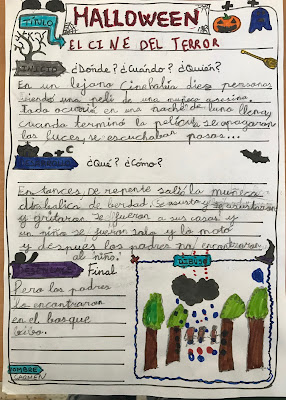 TÍTULO
HALLOWEEN
EL CINE DEL TERROR
INICIO ¿Dónde? ¿Cuándo? ¿Quién?
En un lejano Cine había diez personas
viendo una peli de una muñeca asesina
todo ocurrió en una noche de luna llena y
cuando terminó la película se apagaron
las luces, se escuchaban pasos...
¿Qué? ¿Cómo?
Entonces De repente salió la muñeca
diabolica de berdad ¡Se asusto y se asustaron
y gritaron se fueron a sus casas y
un niño se fueron solo y lo mató
y despues los padres no encontraron
al niño.
Final
Pero los padres
lo encontraron
en el bosque
bibo.
DIBUJO
NOMBRE
CARMEN